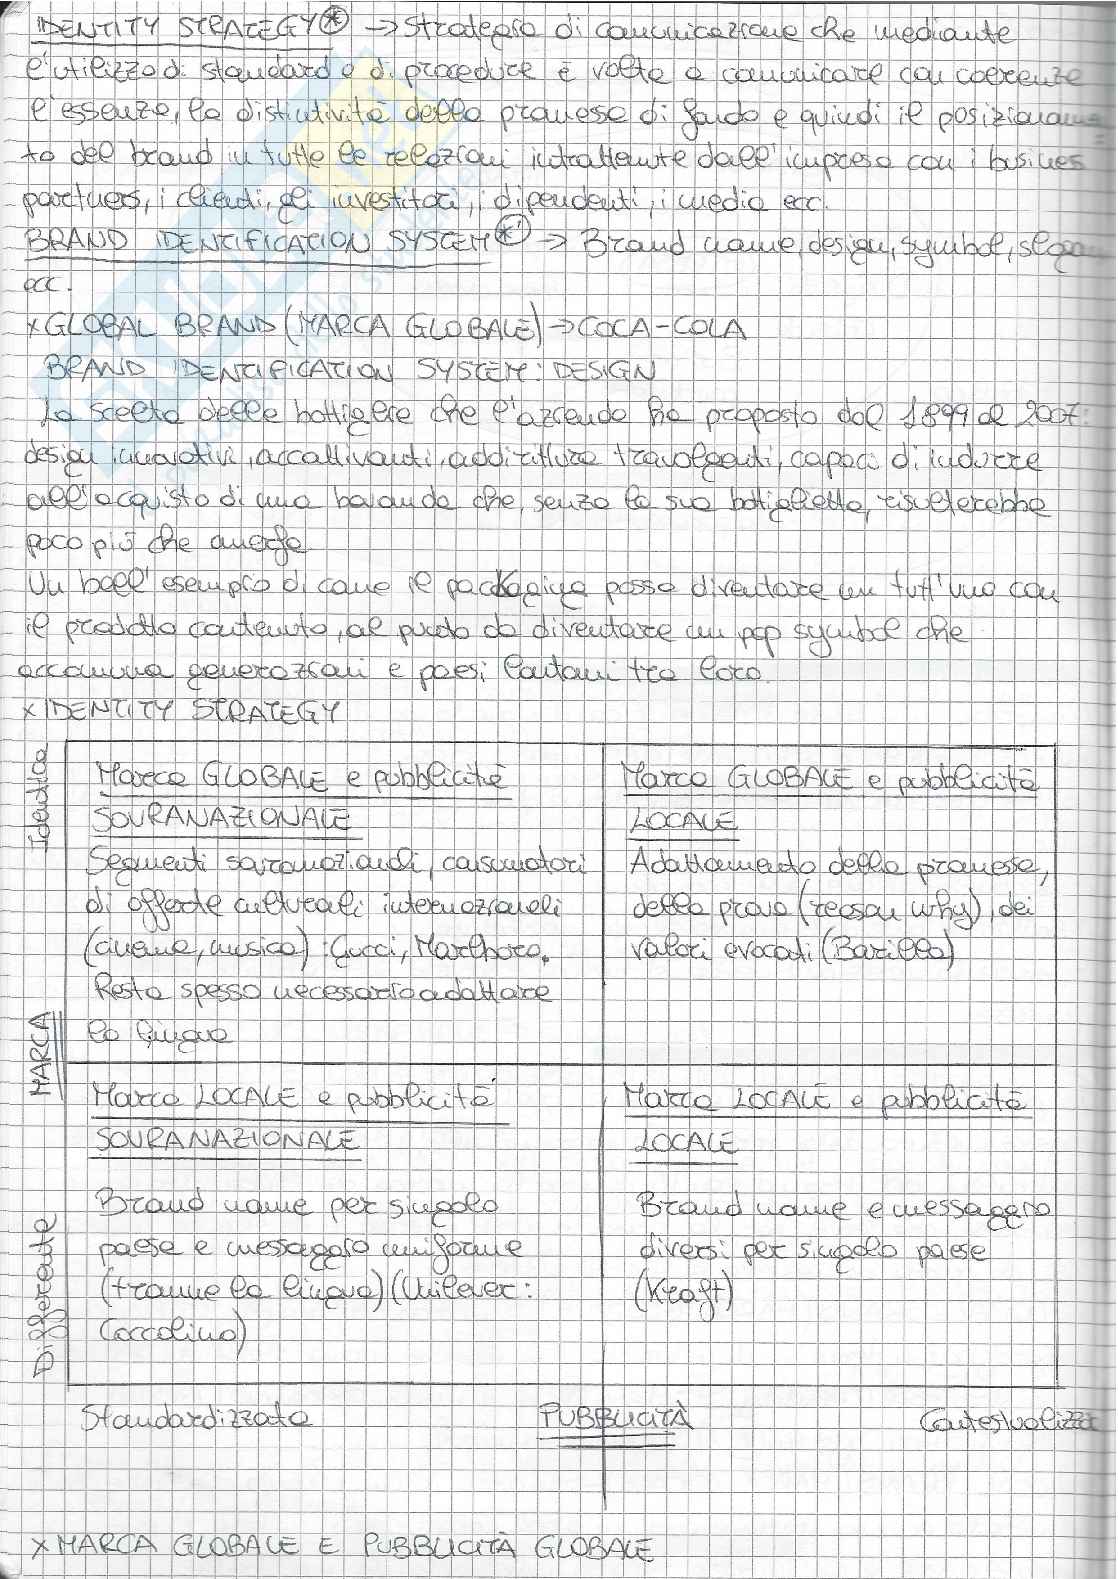 IDENTITY STRATEGY * → Strategia di comunicazione che mediante
l'utilizzo di standard e di procedure è volta a comunicare con coerenza
l'essenza, la distintività della promessa di fondo e quindi il posizionamen-
to del brand in tutte le relazioni intrattenute dall'impresa con i busines
partners, i clienti, gli investitori, i dipendenti, i media ecc.
BRAND IDENTIFICATION SYSTEM *' → Brand name, design, symbol, slogan
ecc.
x GLOBAL BRAND (MARCA GLOBALE) → COCA-COLA
BRAND IDENTIFICATION SYSTEM: DESIGN
La scelta delle bottiglie che l'azienda ha proposto dal 1899 al 2007:
design innovativi, accattivanti, addirittura travolgenti, capaci di indurre
all'acquisto di una bevanda che, senza la sua bottiglietta, risulterebbe
poco più che anonima
Un bell'esempio di come il packaging possa diventare un tutt'uno con
il prodotto contenuto, al punto da diventare un pop symbol che
accomuna generazioni e paesi lontani tra loro.
x IDENTITY STRATEGY
Identica
Marca GLOBALE e pubblicità
SOVRANAZIONALE
Segmenti sovranazionali, consumatori
di offerte culturali internazionali
(cinema, musica): Gucci, Marlboro.
Resta spesso necessario adattare
la lingua
Marca GLOBALE e pubblicità
LOCALE
Adattamento della promessa,
della prova (reason why), dei
valori evocati (Barilla)
MARCA
Differente
Marca LOCALE e pubblicità
SOVRANAZIONALE
Brand name per singolo
paese e messaggio uniforme
(tranne la lingua) (Unilever:
Coccolino)
Marca LOCALE e pubblicità
LOCALE
Brand name e messaggio
diversi per singolo paese
(Kraft)
Standardizzata PUBBLICITÀ Contestualizza
x MARCA GLOBALE E PUBBLICITÀ GLOBALE